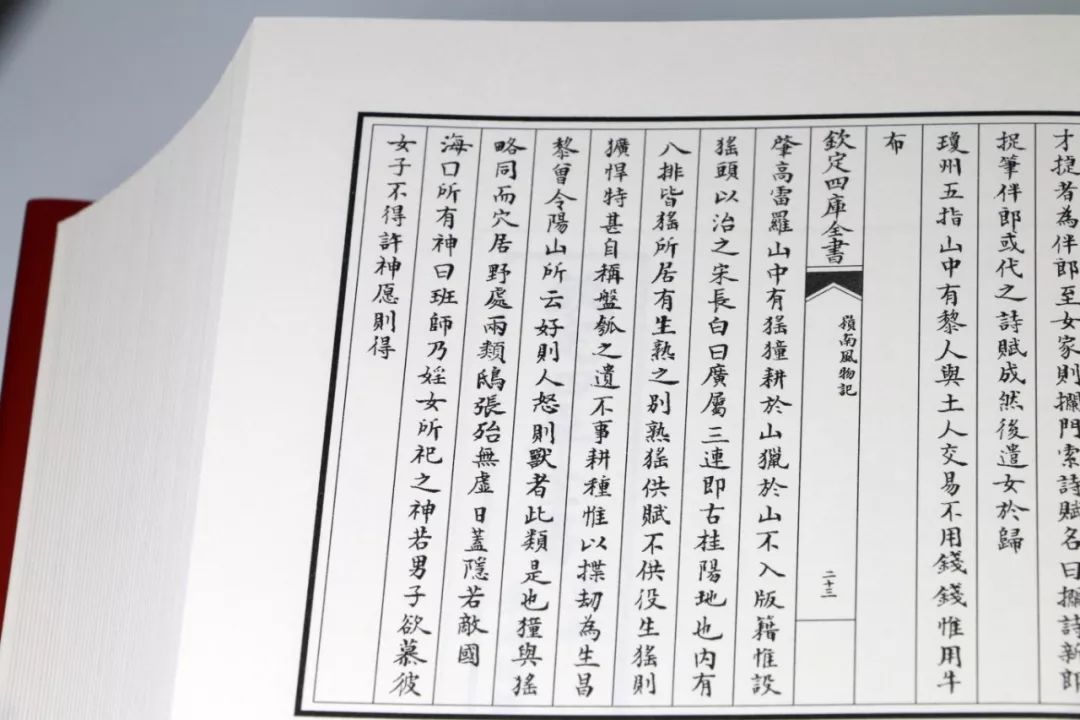 才捷者為伴郎至女家則攔門索詩賦名曰攔詩新郎
捉筆伴郎或代之詩賦成然後遣女於歸
瓊州五指山中有黎人與土人交易不用錢錢惟用牛
布
欽定四庫全書
嶺南風物記
二十三
肇高雷羅山中有猺獞耕於山獵於山不入版籍惟設
猺頭以治之宋長白曰廣屬三連即古桂陽地也内有
八排皆猺所居有生熟之别熟猺供賦不供役生猺則
獷悍特甚自稱盤瓠之遺不事耕種惟以揲刼為生昌
黎曾令陽山所云好則人怒則獸者此類是也獞與猺
略同而穴居野處兩類鴟張殆無虛日蓋隱若敵國
海口所有神曰班師乃婬女所祀之神若男子欲慕彼
女子不得許神愿則得